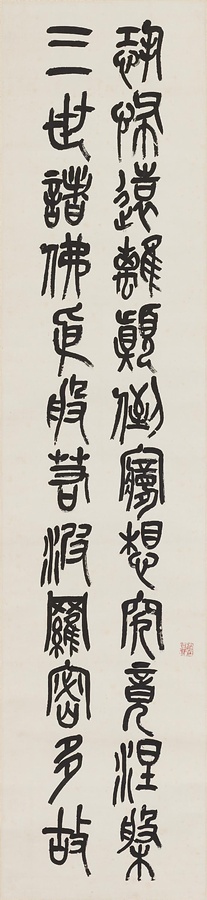 恐怖遠離顛倒夢想究竟涅槃
三世諸佛依般若波羅密多故